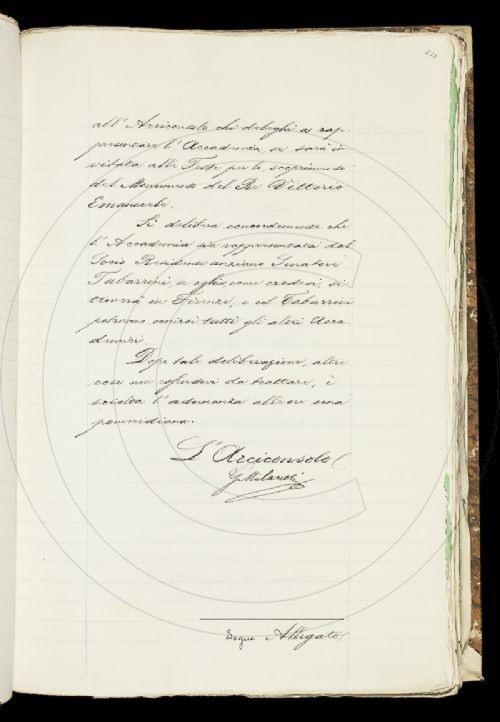 all' Arciconsolo chi deleghi a rap-
presentare l'Accademia, se sarà in-
vitata alle Feste per lo scoprimento
del Monumento del Re Vittorio
Emanuele.
Si delibera concordemente che
l'Accademia sia rappresentata dal
Socio Residente anziano Senatore
Tabarrini, se egli, come credesi, si
troverà in Firenze, e col Tabarrini
potranno unirsi tutti gli altri Acca
demici.
Dopo tale deliberazione, altre
cose non essendovi da trattare, è
sciolta l'adunanza alle ore una
pomeridiana.
L'Arciconsolo
Milanesi
Segue Allegato